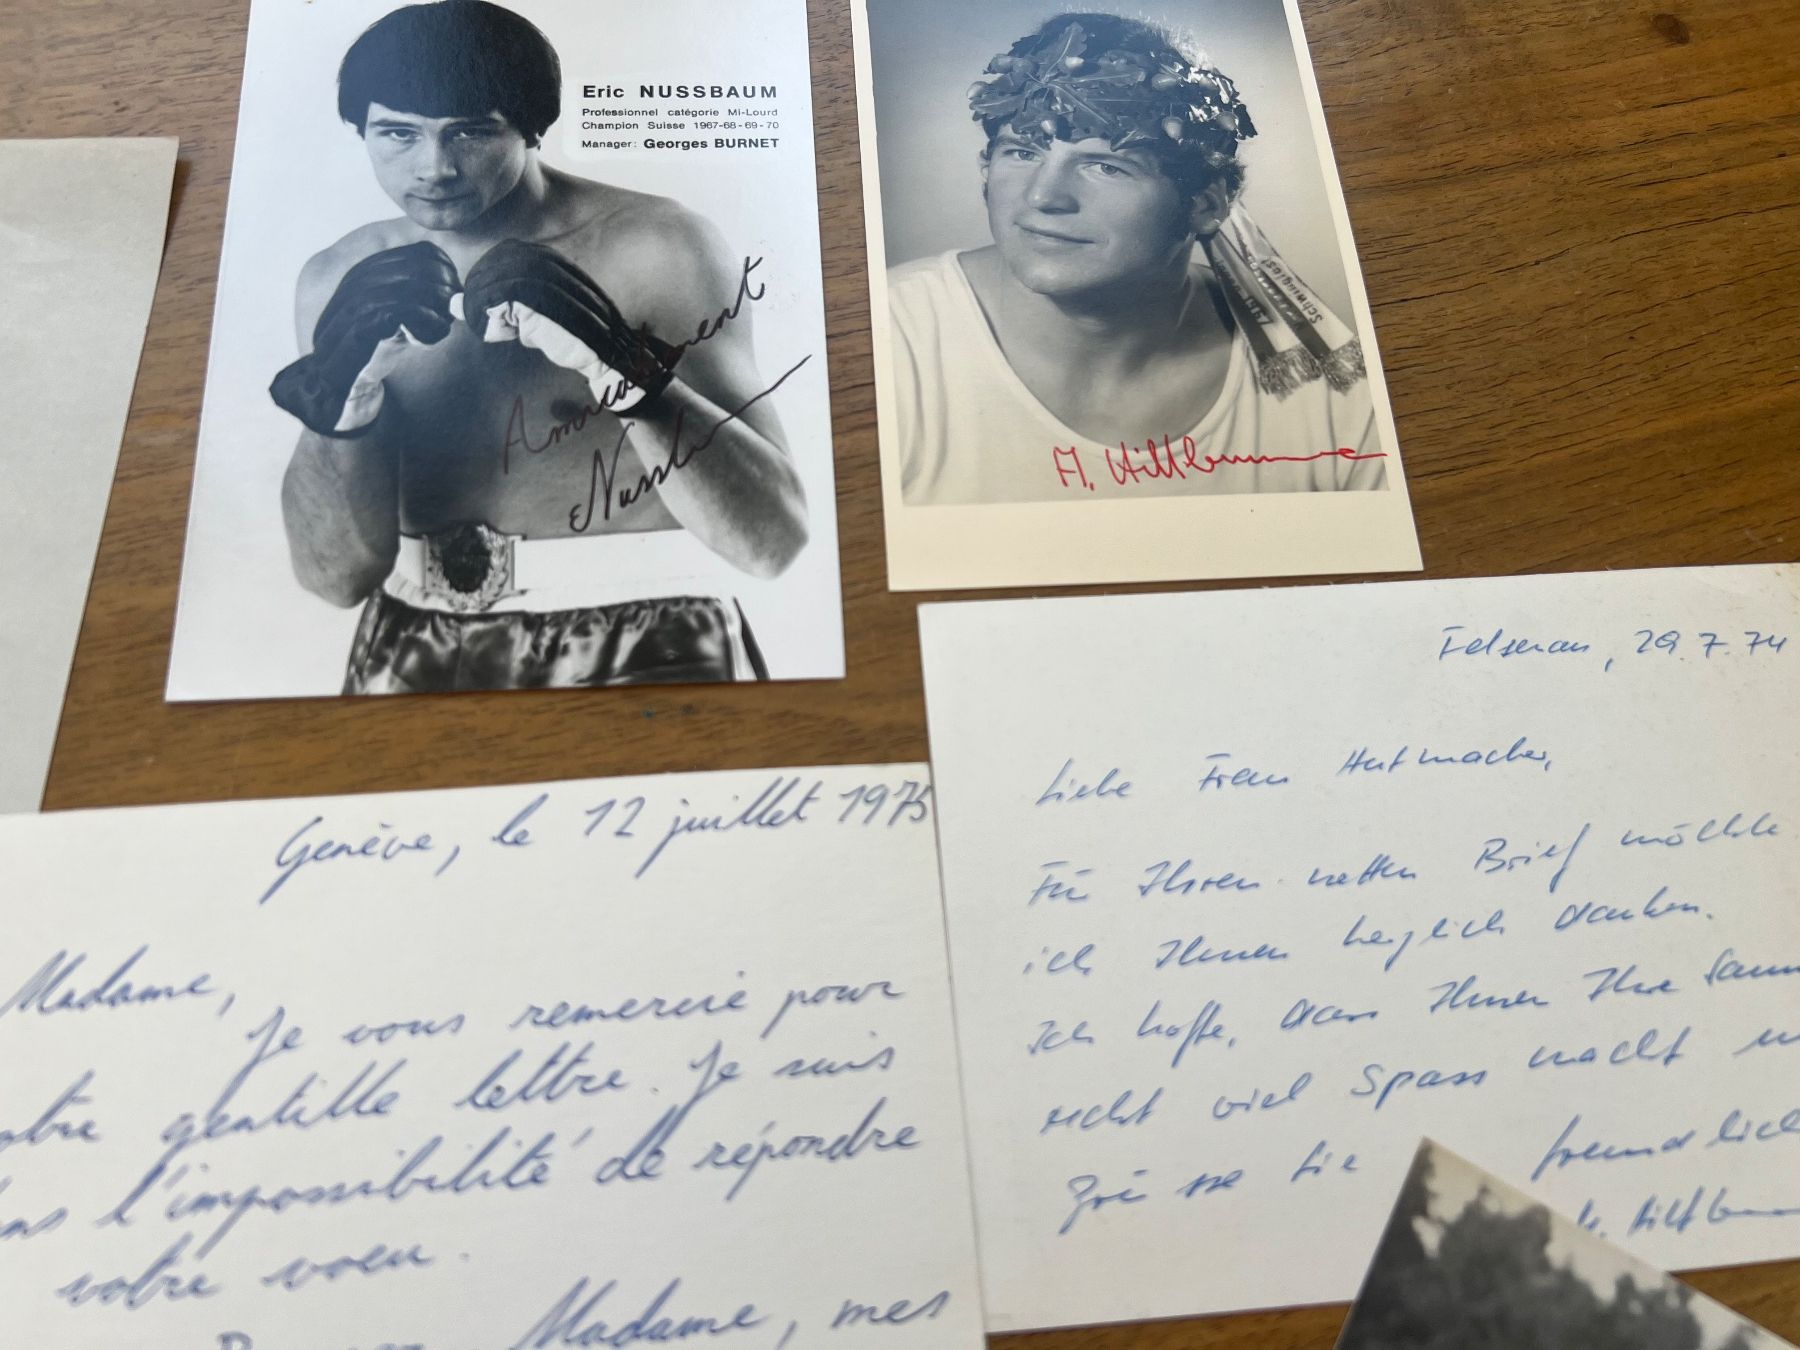 Eric NUSSBAUM
Professionnel catégorie Mi-Lourd
Champion Suisse 1967-68-69-70
Manager: Georges BURNET
Amicalement
Nussb
Schwingfest
Genève, le 12 juillet 1975
Madame,
Je vous remercie pour
gentille lettre. Je suis
l'impossibilité de répondre
votre voeu.
Madame, mes
Felsenau, 29.7.74
Liebe Frau Hutmacher,
Für Ihren netten Brief möchte
ich Ihnen herzlich danken.
Ich hoffe, dass Ihnen Ihre Samm
recht viel Spass macht
Grüsse Sie freundlich